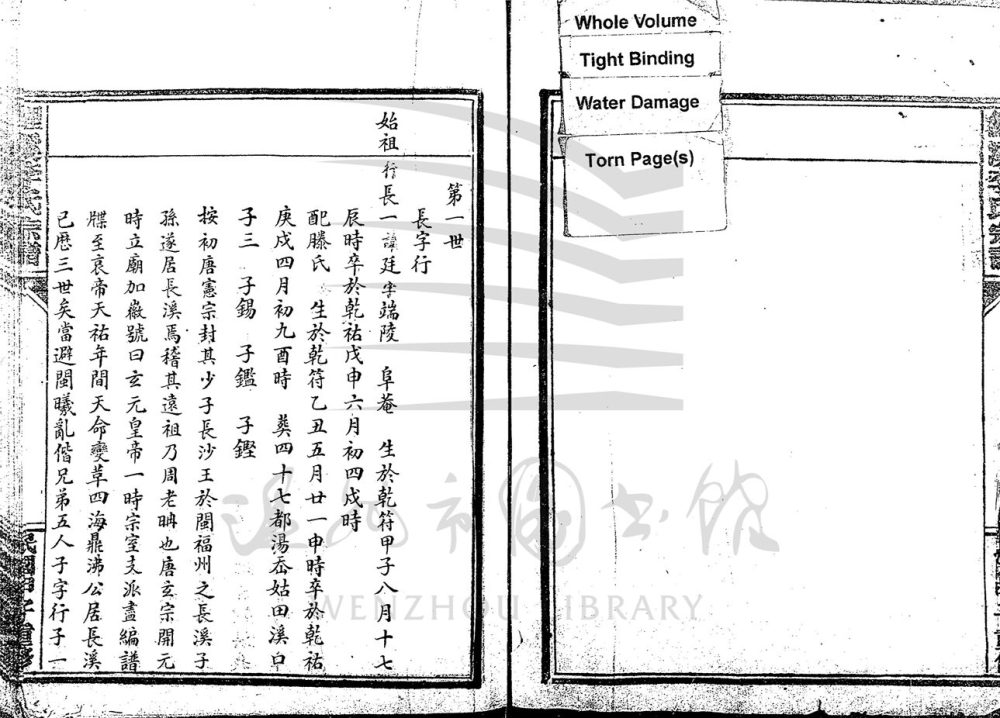 Whole Volume
Tight Binding
Water Damage
Torn Page(s)
第一世
長字行
始祖 行長一諱廷字端陵 阜菴 生於乾符甲子八月十七
辰時卒於乾祐戊申六月初四戍時
配滕氏 生於乾符乙丑五月廿一申時卒於乾祐
庚戍四月初九酉時 葬四十七都湯岙姑田溪口
子三 子錫 子鑑 子鏗
按初唐憲宗封其少子長沙王於閩福州之長溪子
孫遂居長溪焉稽其遠祖乃周老聃也唐玄宗開元
時立廟加徽號曰玄元皇帝一時宗室支派盡編譜
牒至哀帝天祐年間天命變草四海鼎沸公居長溪
已歷三世矣當避閩曦亂偕兄弟五人子字行子一
李氏宗譜
民國甲子重修
温州市圖书馆
WENZHOU LIBRARY